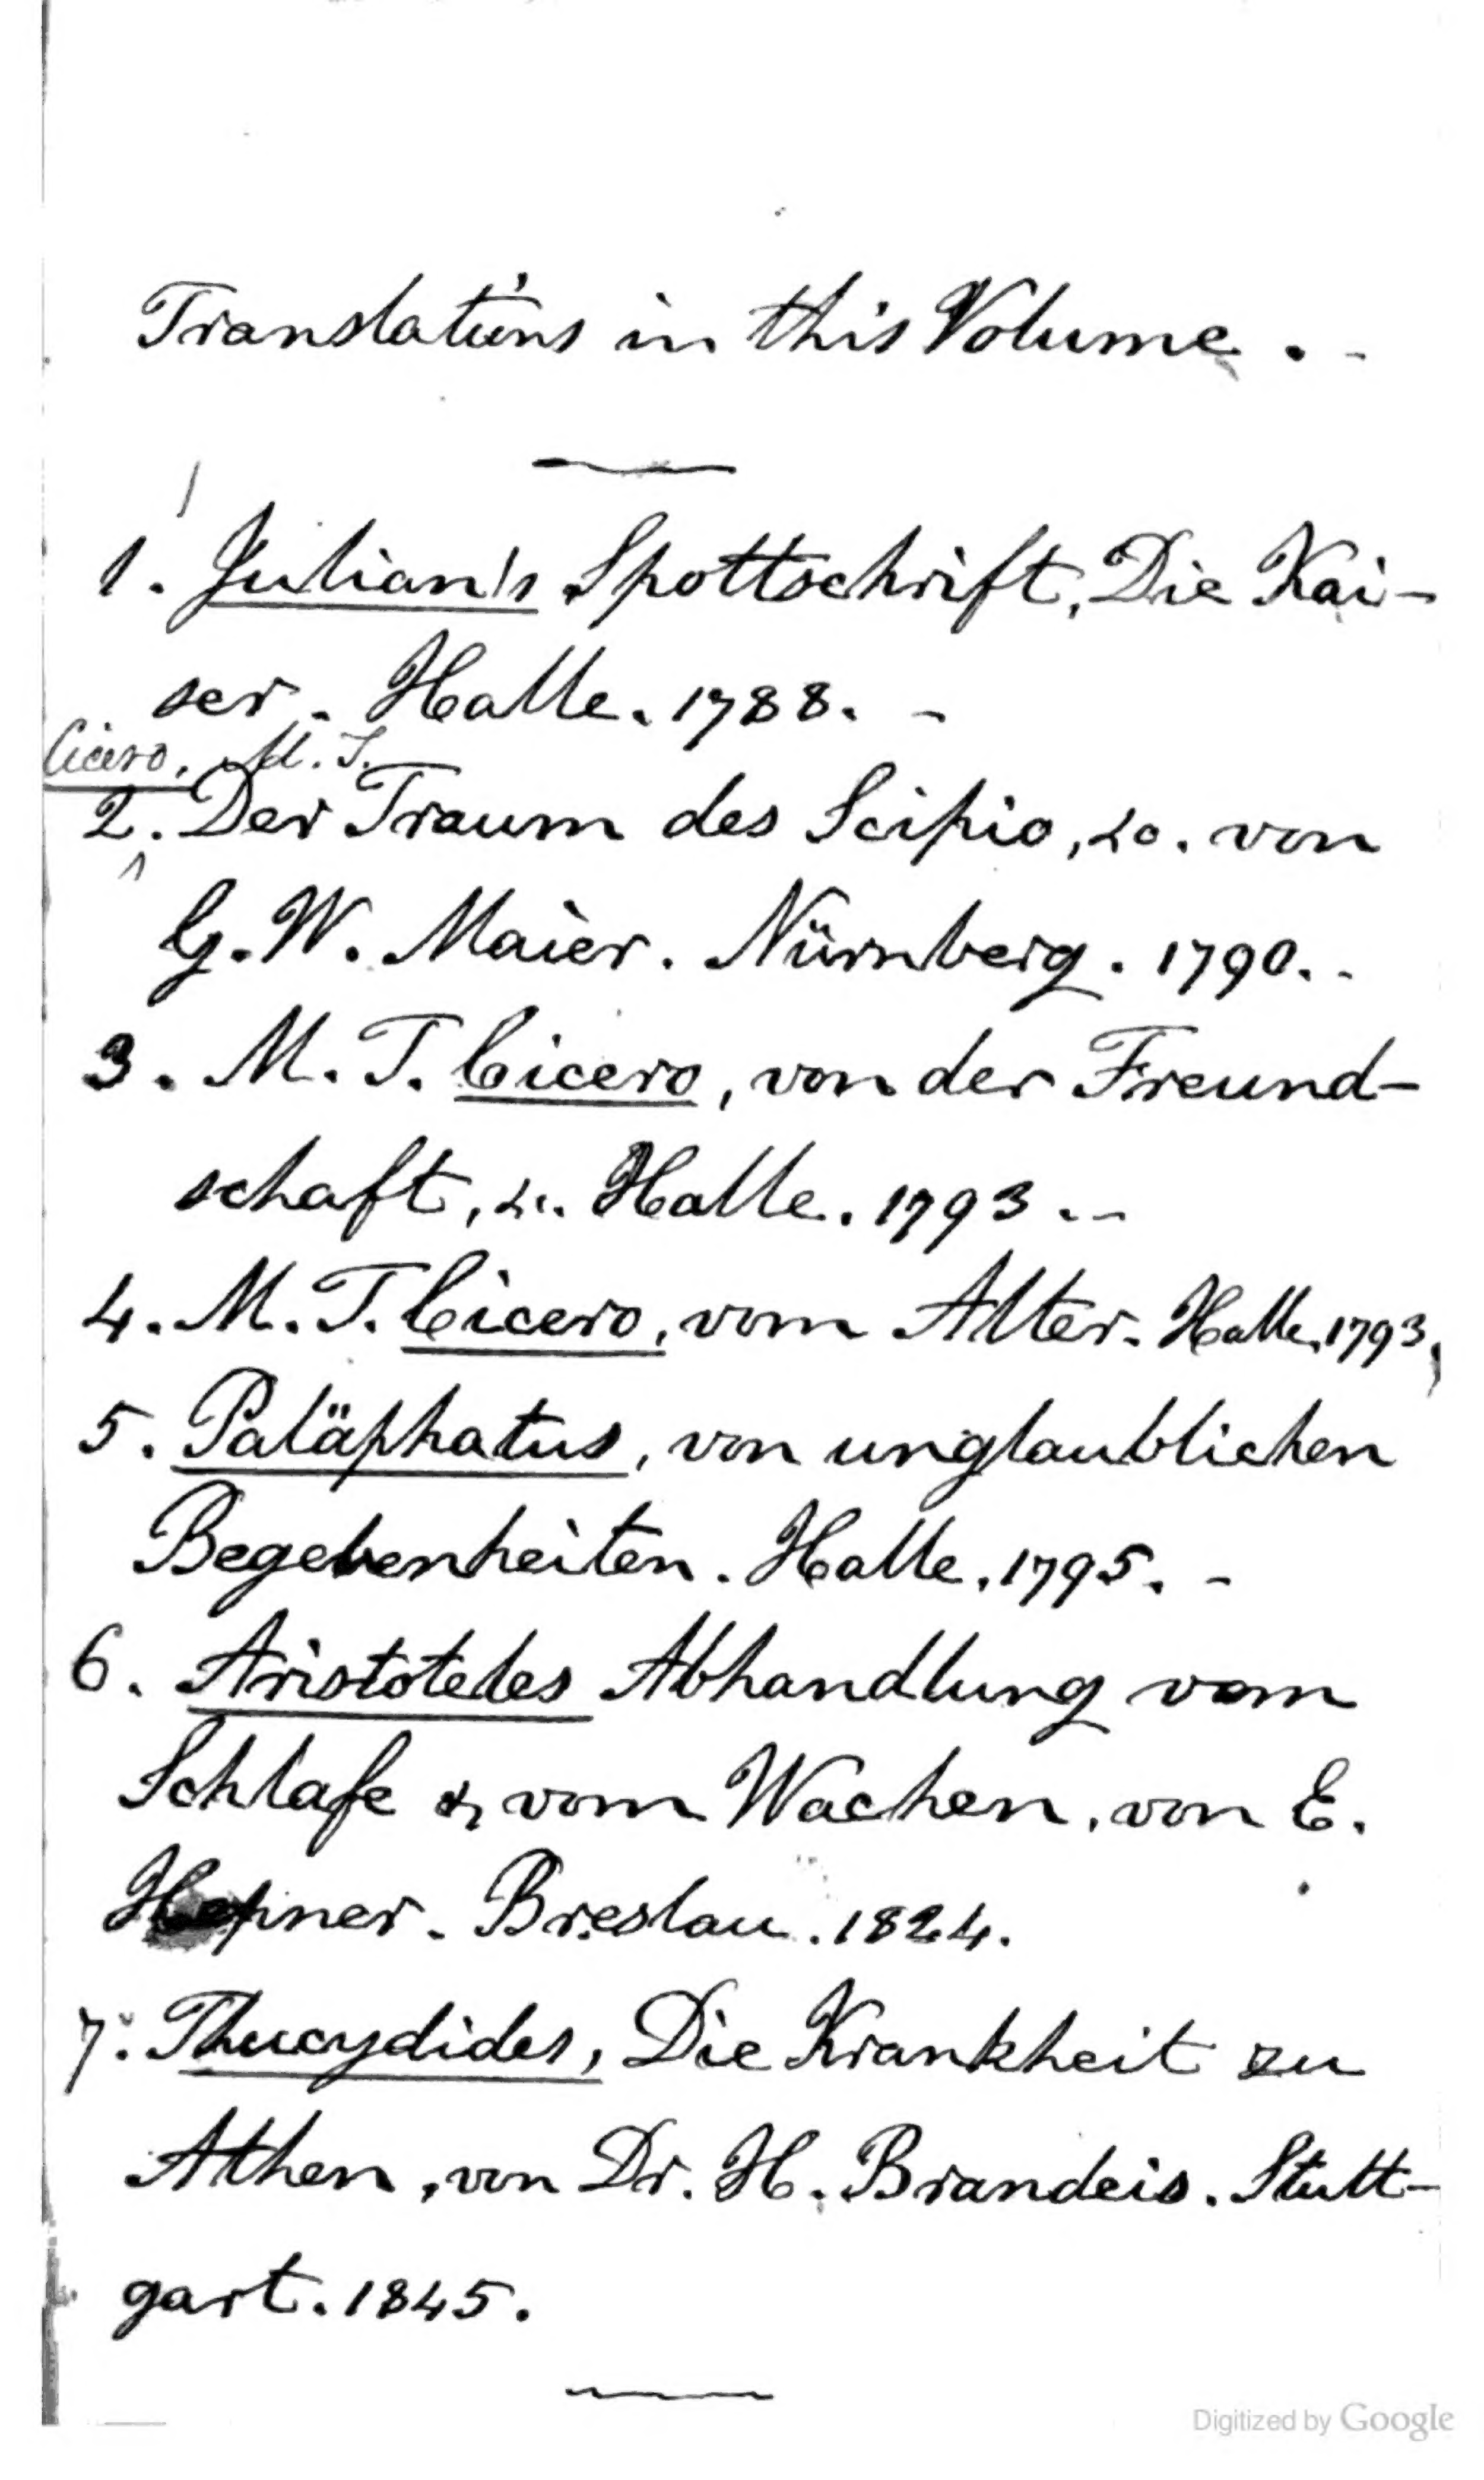 Translations in this Volume. -
1. Julian's Spottschrift, Die Kai-
ser. Halle. 1788. -
Cicero, M. T.
2. Der Traum des Scipio, &c. von
G. W. Maier. Nürnberg. 1790. -
3. M. T. Cicero, von der Freund-
schaft, &c. Halle. 1793. -
4. M. T. Cicero, vom Alter. Halle, 1793,
5. Paläphatus, von unglaublichen
Begebenheiten. Halle, 1795. -
6. Aristoteles Abhandlung vom
Schlafe & vom Wachen, von E.
Hepner. Breslau. 1824.
7. Thucydides, Die Krankheit zu
Athen, von Dr. H. Brandeis. Stutt-
gart. 1845.
Digitized by Google